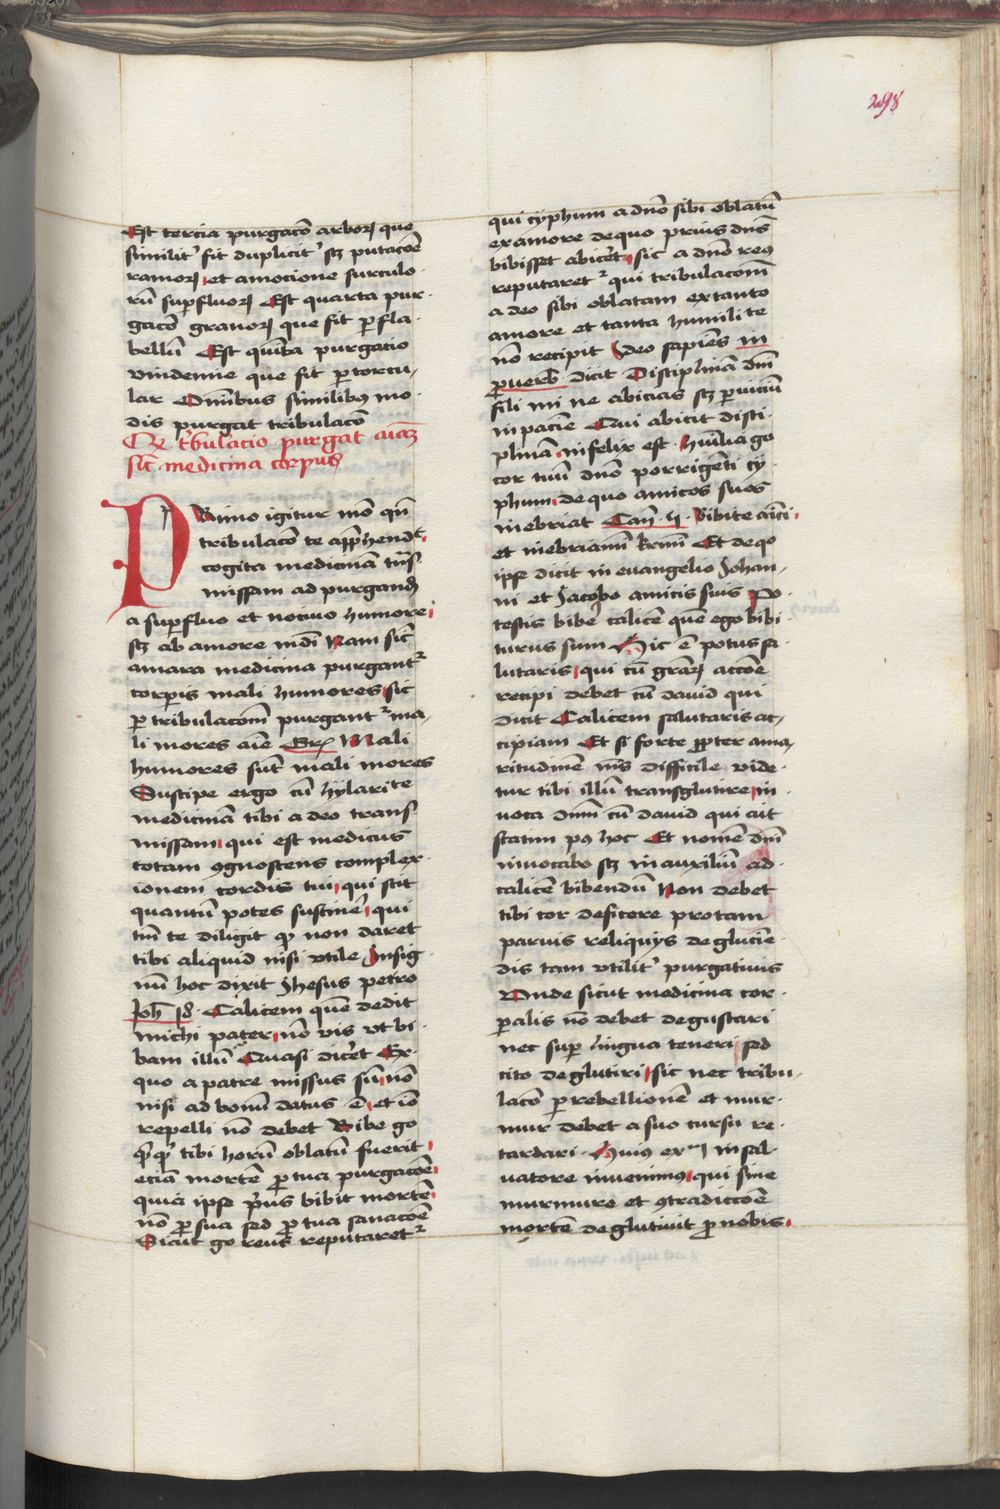 298
Est tercia purgacō arboꝝ que
similit᷑ fit duplicit᷑ sꝫ putacōe
ramoꝝ et amocione surculo
rū suꝑfluoꝝ Est quarta pur
gacō granoꝝ que fit ꝑ fla
bellū Est quīta purgacio
vindemie que fit ꝑ torcu
lar Omībus similibꝰ mo
dis purgat tribulacō
Qꝫ t'bulacio purgat aīaꝫ
sic̄ medicina corpus
Primo igitur mō qn̄
tribulacō te appͤhendit
cogita medicinā trās
missam ad purgand
a suꝑfluo et nociuo humore
sꝫ ab amore mūdi Nam sic̄
amara medicina purgant᷑
corꝑis mali humores sic
ꝑ tribulacōm purgant᷑ ma
li mores aīe Gͤg Mali
humores sūt mali mores
Suscipe ergo cū hylarite
medicinā tibi a deo trans
missam qui est medicus
totam ꝯgnoscens complex
ionem cordis tui qui scit
quantū potes sustinē qui
tm̄ te diligit qꝫ non daret
tibi aliquid nisi vtile Insig
nū hoc dixit Jhesus petro
Joh 18 Calicem quē dedit
michi pater nō vis vt bi
bam illū Quasi dic̄et Ex
quo a patre missus sū nō
nisi ad bonū datus ē et iō
repelli nō debet Bibe go
qͥcqͥd tibi horū oblatū fuerit
eciā mortē ꝓ tua purgacōe
quia ipse pͥus bibit mortē
nō ꝓ sua sed ꝓ tua sanacōe
Sicut go reus reputaret᷑
qui cyphum a dn̄o sibi oblatū
ex amore de quo prius dn̄s
bibisset abic̄et sic a dn̄o reꝰ
reputaret᷑ qui tribulacōm
a deo sibi oblatam ex tanto
amore et tanta humilite
nō recipit Ideo sapiēs in
ꝓuerb dicit Disciplinā dn̄i
fili mi ne abicias sꝫ ꝑ viciū
inpaciē Qui abicit disci
plinā infelix est humilia go
cor tuū dn̄o porrigēti cy
phum de quo amicos suos
inebriat Can̄ 5 Bibite amici
et inebriamī kr̄mi Et de qo
ipse dicit in euangelio Johan
ni et Jacobo amicis suis Po
testis bibe calicē quē ego bibi
turus sum Hic ē potus sa
lutaris qui cū gr̄aꝝ accōe
recipi debet cū dauid qui
dicit Calicem salutaris ac
cipiam Et si forte ꝓpter ama
ritudinē nīs difficile vide
tur tibi illū transglutire in
uoca dn̄m cū dauid qui ait
statim pꝰ hoc Et nomē dn̄i
inuocabo sꝫ in auxiliū ad
calicē bibendū Non debet
tibi cor deficere pro tam
paruis reliquijs degluciē
dis tam vtilit᷑ purgatiuis
Vnde sicut medicina cor
ꝑalis nō debet degustari
nec suꝑ lingua teneri sed
cito deglutiri sic nec tribu
lacō ꝑ rebellionē et mur
mur debet a suo cursu re
tardari Huius exᵐ in sal
uatore inuenimꝰ qui sine
murmure et ꝯtradiccōe
mortē deglutiuit ꝓ nobis